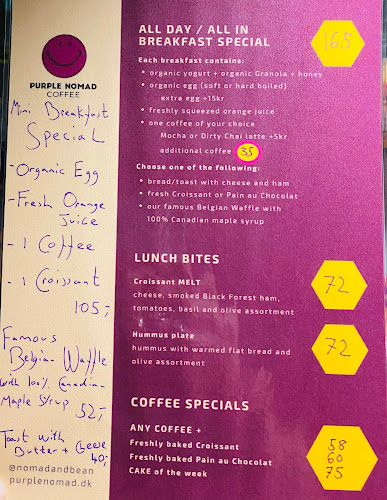 PURPLE NOMAD
COFFEE
Mini Breakfast
Special
- Organic Egg
- Fresh Orange
Juice
- 1 Coffee
- 1 Croissant
105,-
Famous
Belgian Waffle
with 100% Canadian
Maple Syrup 52,-
Toast with
Butter + Cheese
40,-
@nomadandbean
purplenomad.dk
ALL DAY / ALL IN
BREAKFAST SPECIAL
165
Each breakfast contains:
• organic yogurt + organic Granola + honey
• organic egg (soft or hard boiled)
extra egg +15kr
• freshly squeezed orange juice
• one coffee of your choice
Mocha or Dirty Chai latte +5kr
additional coffee 35
Choose one of the following:
• bread/toast with cheese and ham
• fresh Croissant or Pain au Chocolat
• our famous Belgian Waffle with
100% Canadian maple syrup
LUNCH BITES
Croissant MELT
cheese, smoked Black Forest ham,
tomatoes, basil and olive assortment
72
Hummus plate
hummus with warmed flat bread and
olive assortment
72
COFFEE SPECIALS
ANY COFFEE +
Freshly baked Croissant 58
Freshly baked Pain au Chocolat 60
CAKE of the week 75